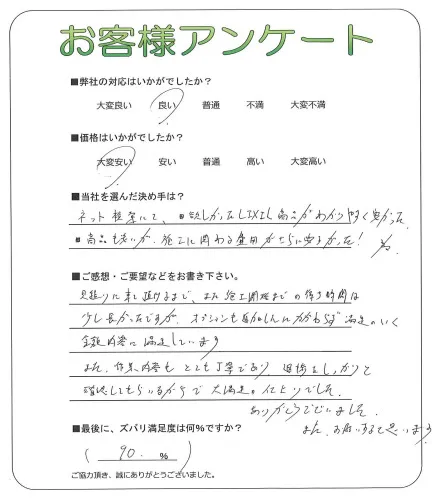 お客様アンケート
■弊社の対応はいかがでしたか？
大変良い 良い 普通 不満 大変不満
■価格はいかがでしたか？
大変安い 安い 普通 高い 大変高い
■当社を選んだ決め手は？
ネット検索にて、欲しかったLIXIL商品がわかりやすく安かった
商品も安いが、施工に関わる費用がさらに安かった！ 為
■ご感想・ご要望などをお書き下さい。
見積りに来て頂けるまで、また施工開始までの待ち時間は
少し長かったですが、オプションも追加したにもかかわらず満足のいく
金額内容に満足しています
また、作業内容もとても丁寧であり、現場をしっかりと
確認してもらいながらで大満足の仕上りでした。
ありがとうございました。
また、お願いすると思います
■最後に、ズバリ満足度は何%ですか？
( 90. % )
ご協力頂き、誠にありがとうございました。